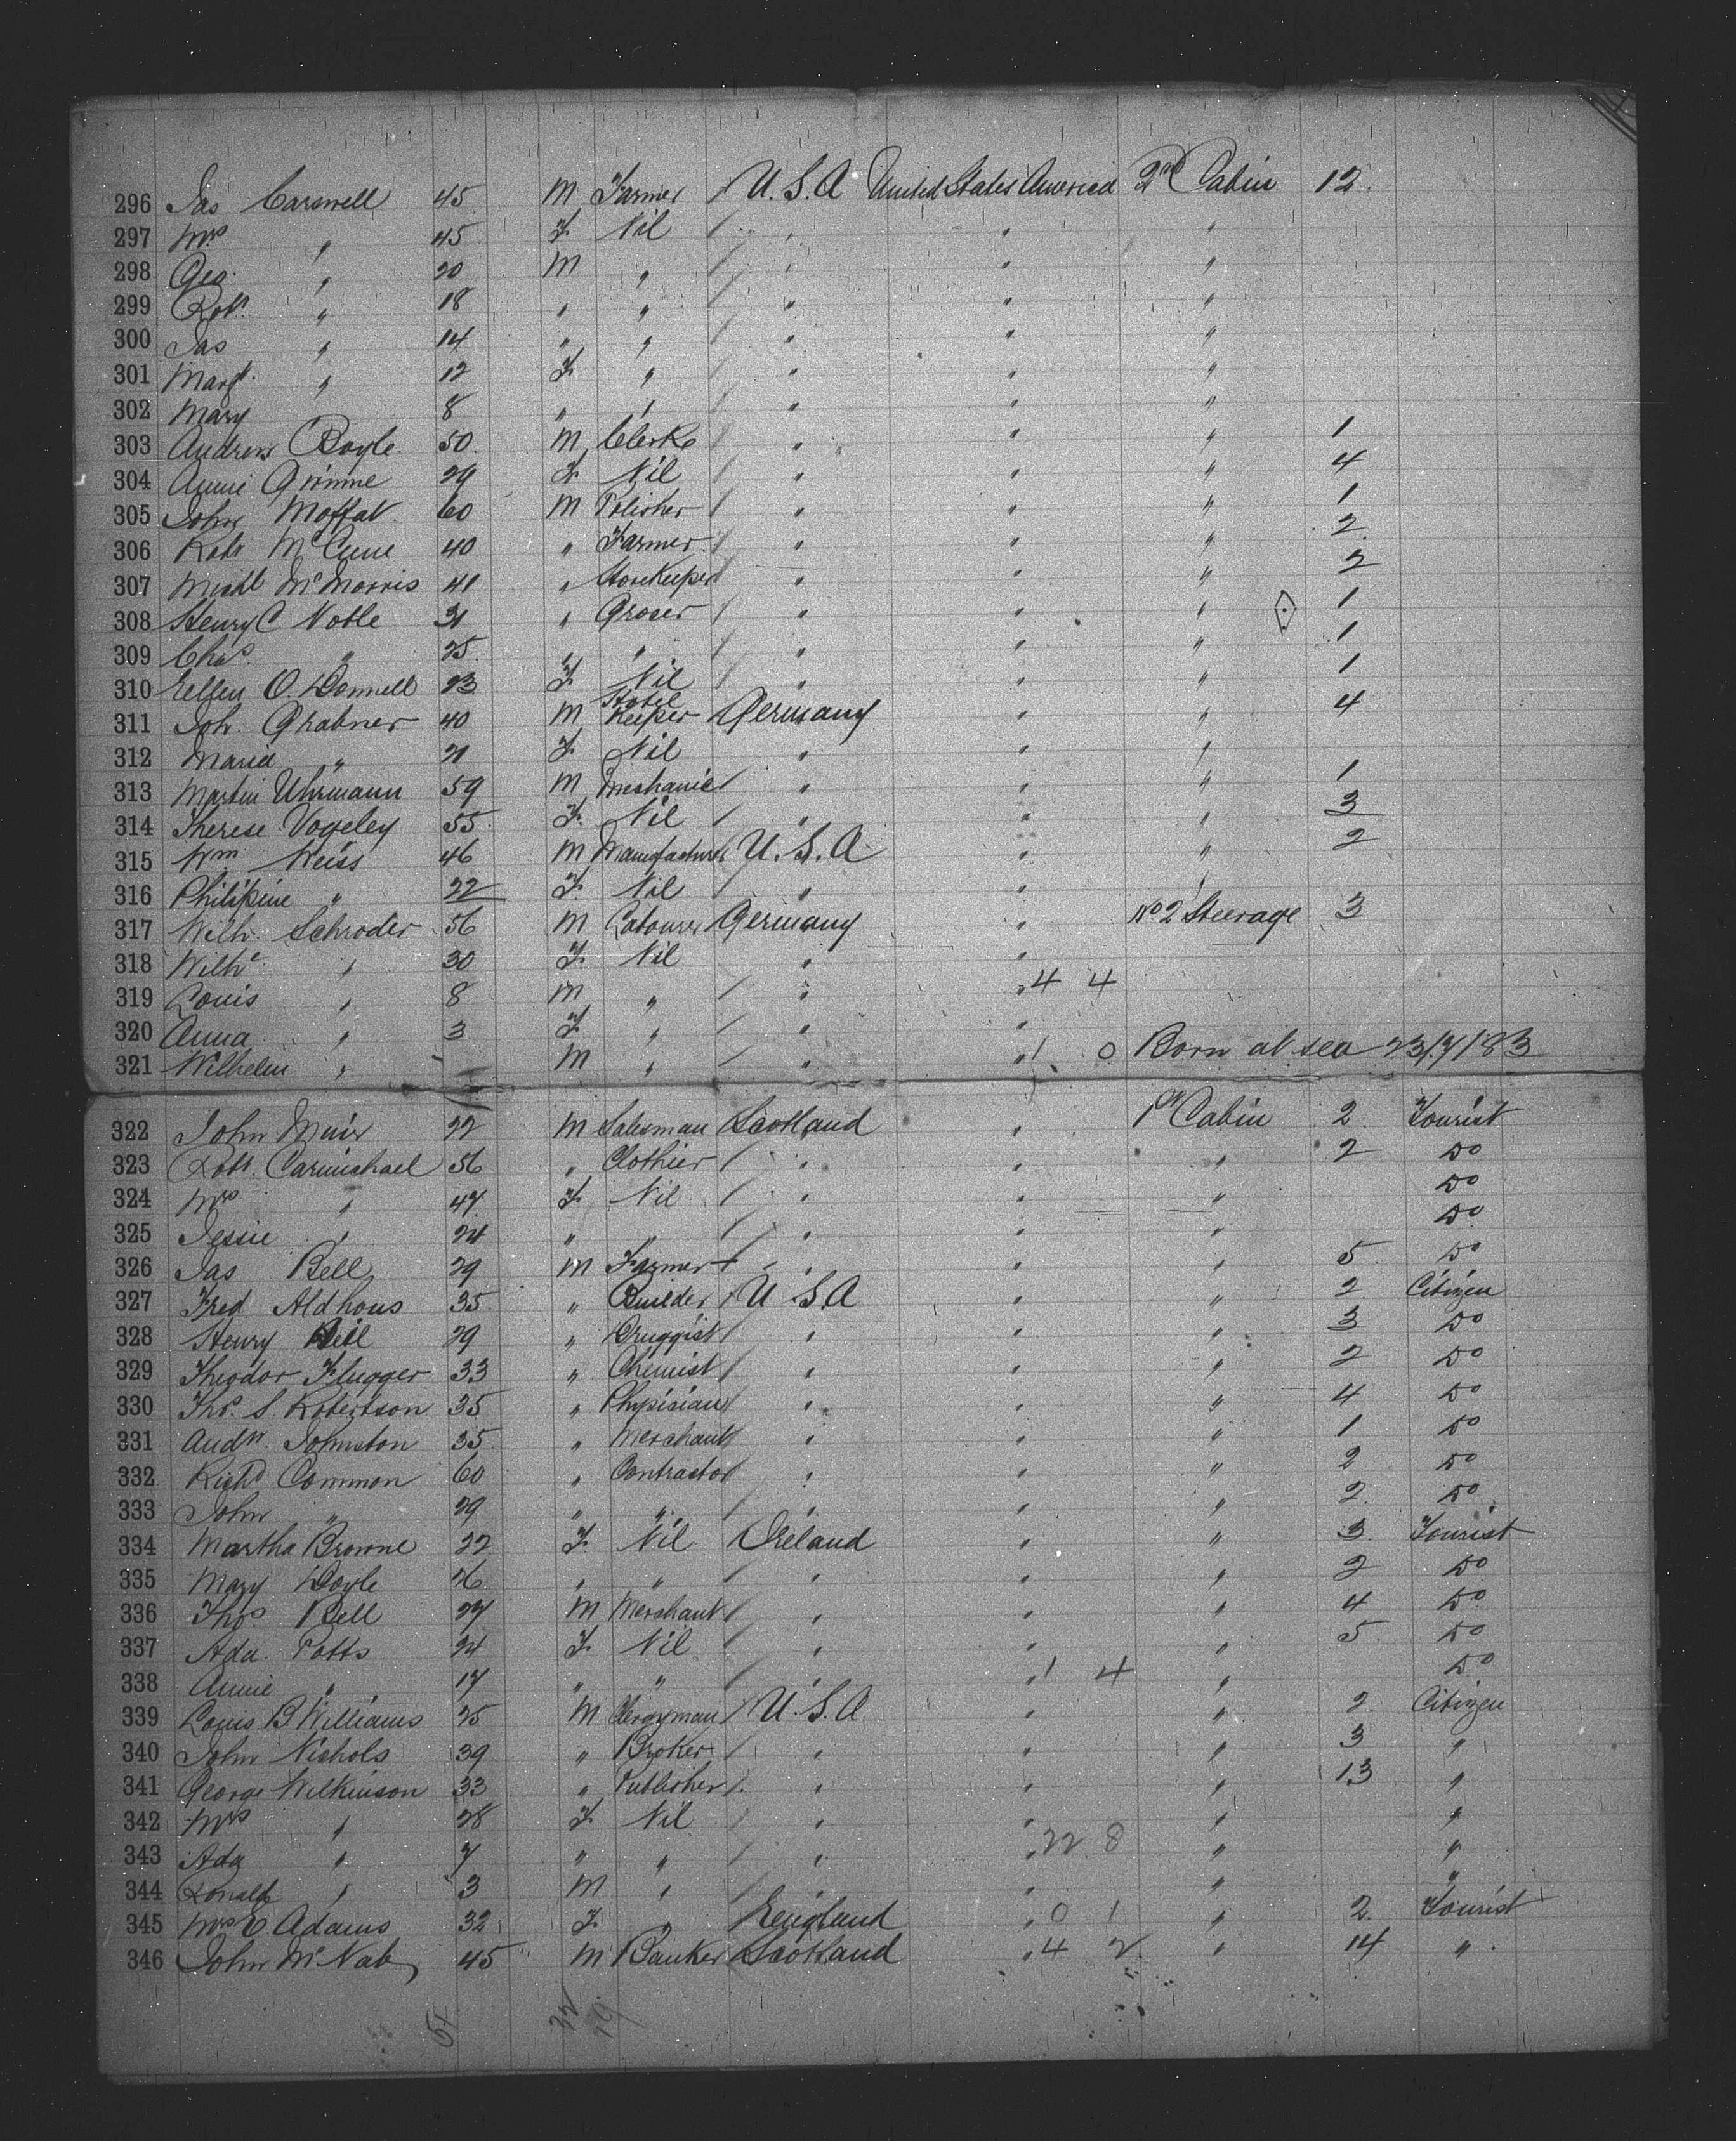 296 Jas Carswell 45 M Farmer / U.S.A United States America 2nd Cabin 12
297 Mrs " 45 F. Nil / " " "
298 Geo. " 20 M " / " " "
299 Robt. " 18 " " / " " "
300 Jas " 14 " " / " " "
301 Margt. " 12 F. " / " " "
302 Mary 8 " " / " " "
303 Andrew Boyle 50 M Clerk / " " " 1
304 Annie Grimme 29 F. Nil / " " " 4
305 John Moffat 60 M Polisher / " " " 1
306 Robt McCune 40 " Farmer / " " " 2
307 Michl McMorris 41 " Storekeeper " " " 2
308 Henry C Noble 31 " Grocer / " " " 1
309 Chas. " 25 " " / " " " 1
310 Ellen O. Donnell 23 F. Nil " " " 1
311 Joh. Grabner 40 M Hotel Keeper Germany " " 4
312 Maria " 21 F. Nil " " "
313 Martin Uhrmann 59 M Mechanic / " " " 1
314 Therese Vogeley 55 F. Nil / " " " 3
315 Wm Weiss 46 M Manufacturer U.S.A " " 2
316 Philipine " 22 F. Nil / " " "
317 Wilh. Schroder 56 M Labourer Germany " No 2 Steerage 3
318 Wilhe " 30 F. Nil " "
319 Louis " 8 M " / " " 4 4
320 Anna " 3 F. " / " "
321 Wilhelm " M " / " " 1 0 Born at sea 23/7/83
322 John Muir 22 M Salesman Scotland " 1st Cabin 2 Tourist
323 Robt. Carmichael 56 " Clothier / " " " 2 Do
324 Mrs " 47 F. Nil / " " " Do
325 Jessie " 24 " " / " " " Do
326 Jas Bell 29 M Farmer / " " " 5 Do
327 Fred Aldhous 35 " Builder / U.S.A " " 2 Citizen
328 Henry Bell 29 " Druggist / " " " 3 Do
329 Theodor Flugger 33 " Chemist / " " " 2 Do
330 Thos. S. Robertson 35 " Physician / " " " 4 Do
331 Andw. Johnston 35 " Merchant / " " " 1 Do
332 Richd Common 60 " Contractor " " " 2 Do
333 John " 29 " " / " " " 2 Do
334 Martha Browne 22 F. Nil Ireland " " 3 Tourist
335 Mary Doyle 26 " " / " " " 2 Do
336 Thos Bell 27 M Merchant / " " " 4 Do
337 Ada. Potts 24 F. Nil / " " " 5 Do
338 Annie " 17 " " / " " 1 4 " Do
339 Louis B Williams 25 M Clergyman / U.S.A " " 2 Citizen
340 John Nichols 39 " Broker / " " " 3 "
341 George Wilkinson 33 " Publisher / " " " 13 "
342 Mrs " 28 F. Nil / " " " "
343 Ada " 7 " " / " " 22 8 " "
344 Ronald " 3 M " / " " " "
345 Mrs E Adams 32 F. " England " 0 1 " 2 Tourist
346 John McNab 45 M Banker Scotland " 4 2 " 14 "